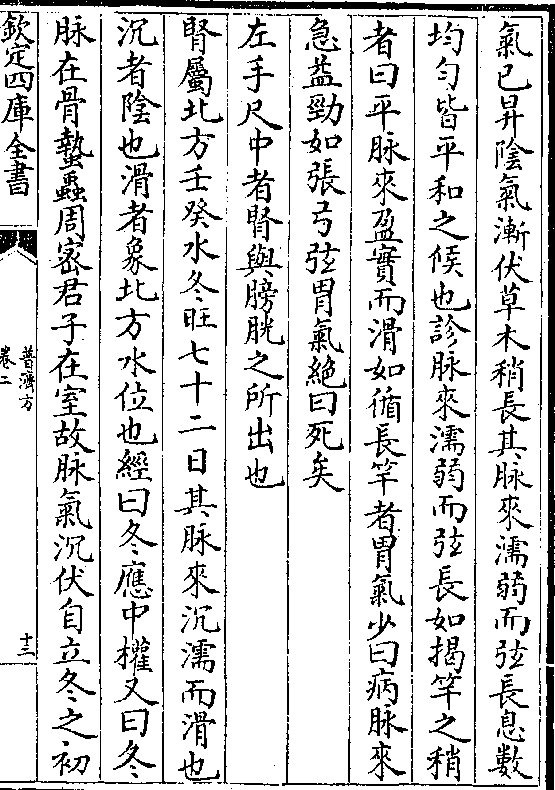 氣已昇陰氣漸伏草木稍長其脉來濡弱而弦長息數
均勻皆平和之候也診脉來濡弱而弦長如揭竿之稍
者曰平脉來盈實而滑如循長竿者胃氣少曰病脉來
急益勁如張弓弦胃氣絶曰死矣
左手尺中者腎與膀胱之所出也
腎屬北方壬癸水冬旺七十二日其脉來沉濡而滑也
沉者陰也滑者象北方水位也經曰冬應中權又曰冬
脉在骨蟄蟲周宻君子在室故脉氣沉伏自立冬之初
欽定四庫全書
普濟方
卷二
十二